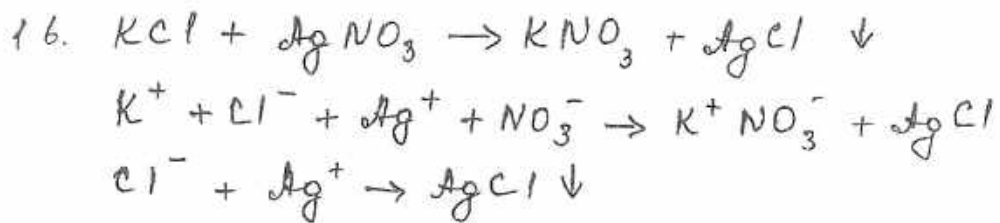 16. KCl + AgNO₃ → KNO₃ + AgCl ↓
K⁺ + Cl⁻ + Ag⁺ + NO₃⁻ → K⁺ NO₃⁻ + AgCl
Cl⁻ + Ag⁺ → AgCl ↓